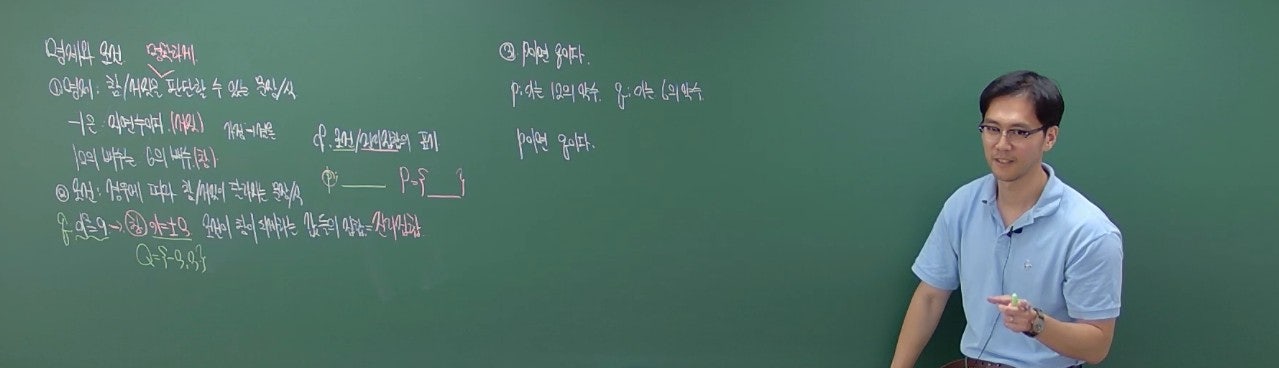 명제와 조건 명확하게
①명제: 참/거짓을 판단할 수 있는 문장/식
-1은 자연수이다.(거짓)
12의 배수는 6의 배수(참)
p. 조건/진리집합의 표기
p: P={ }
②조건: 경우에 따라 참/거짓이 달라지는 문장/식
조건이 참이 되게하는 값들의 집합=진리집합
Q={-3,3}
③ p이면 q이다.
p: x는 12의 약수. q: x는 6의 약수.
p이면 q이다.